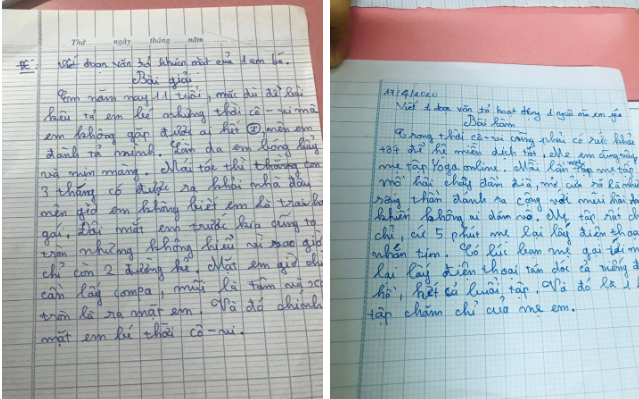 Thứ ngày tháng năm
Đề: Viết đoạn văn tả khuôn mặt của 1 em bé.
Bài giải
Em năm nay 11 tuổi, mặc dù đề bài
yêu tả em bé nhưng thời cô-vi mà
em không gặp được ai hết nên em
đành tả mình. Làn da em bóng bẩy
và mịn màng. Mái tóc thì tháng con
3 tháng có được ra khỏi nhà đâu
nên giờ em không biết em là trai hay
gái. Đôi mắt em trước kia cũng to
tròn nhưng không hiểu vì sao giờ
chỉ còn 2 đường kẻ. Mặt em giờ chỉ
cần lấy compa, mũi là tâm và xoay
tròn là ra mặt em. Và đó chính
mặt em bé thời cô-vi.
17/4/2020
Viết 1 đoạn văn tả hoạt động 1 người mà em yêu
Bài làm
Trong thời cô-vi cũng phải có sức khỏe
tốt để hệ miễn dịch tốt. Mẹ em cũng vậy
mẹ tập Yoga online. Mỗi lần mẹ tập
mồ hôi chảy đầm đìa, mở cửa sổ là
thân cộng với mùi hôi
khiến không ai dám nó. Mẹ tập rất
chỉ, cứ 5 phút mẹ lại lấy điện thoại
nhắn tin. Có lúc bạn mẹ gọi tới mẹ
lại lấy điện thoại tám dóc cả tiếng
hồ, hết cả buổi tập. Và đó là 1
tập chăm chỉ của mẹ em.